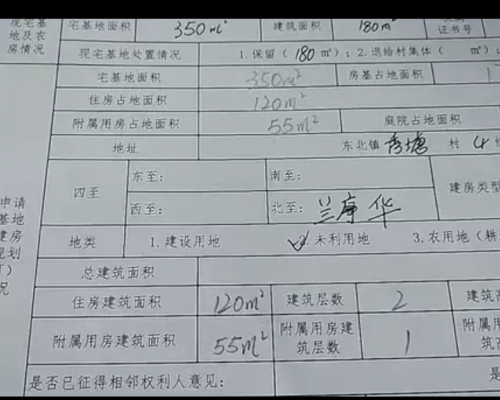 宅基地面积 350m² 建筑面积 180m² 证书号
地及农
房情况
现宅基地处置情况 1.保留（180㎡）；2.退给村集体（ ㎡）；
宅基地面积 350m² 房基占地面积
住房占地面积 120m²
附属用房占地面积 55m² 庭院占地面积
地址 东北镇 秀塘 村
四至 东至： 南至： 建房类型
西至： 北至： 兰 华
申请
基地
建房
规划
况
地类 1.建设用地 ✓2.未利用地 3.农用地（耕
总建筑面积
住房建筑面积 120m² 建筑层数 2
附属用房建筑面积 55m² 附属用房建筑层数 1
是否已征得相邻权利人意见：